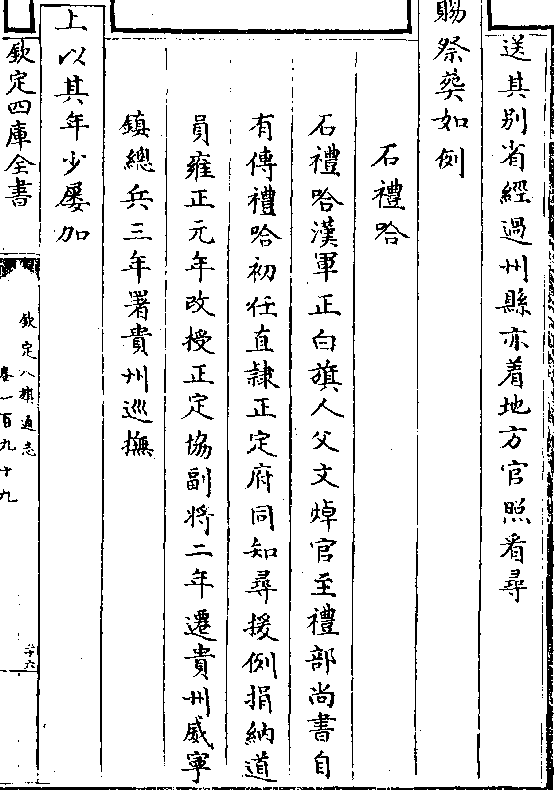 送其别省經過州縣亦着地方官照看尋
賜祭葬如例
石禮哈
石禮哈漢軍正白旗人父文焯官至禮部尚書自
有傳禮哈初任直隷正定府同知尋援例捐納道
員雍正元年改授正定協副將二年遷貴州威寧
鎮總兵三年署貴州巡撫
上以其年少屡加
欽定四庫全書
欽定八旗通志
卷一百九十九